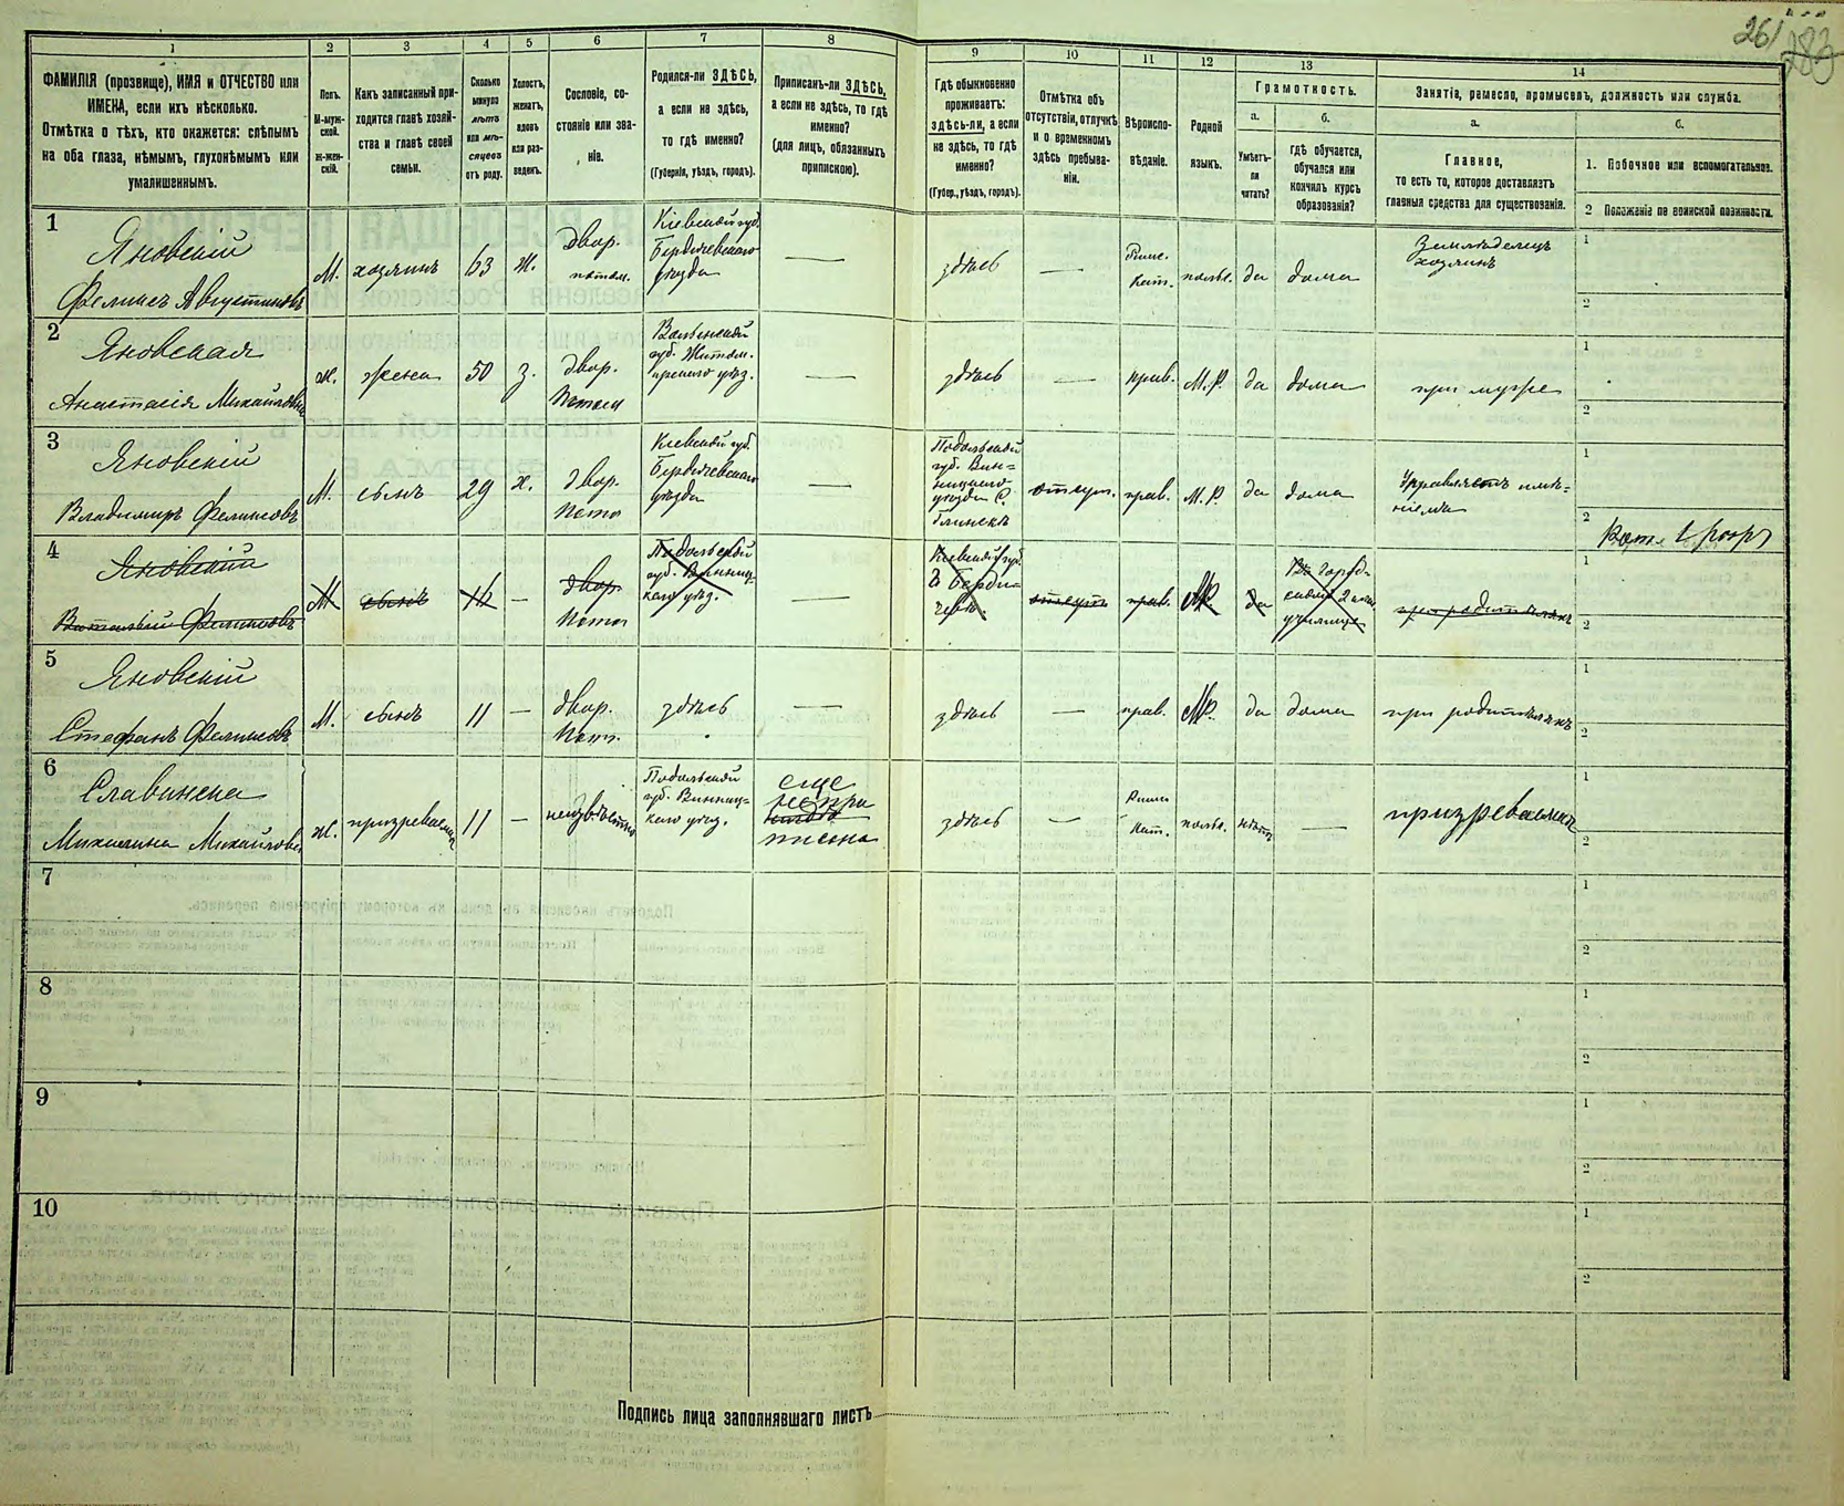 261
283
1
2
3
4
5
6
7
8
9
10
11
12
13
14
ФАМИЛІЯ (прозвище), ИМЯ и ОТЧЕСТВО или
ИМЕНА, если ихъ нѣсколько.
Отмѣтка о тѣхъ, кто окажется: слѣпымъ
на оба глаза, нѣмымъ, глухонѣмымъ или
умалишеннымъ.
Полъ.
М-муж-
ской.
Ж-жен-
скій.
Какъ записанный при-
ходится главѣ хозяй-
ства и главѣ своей
семьи.
Сколько
минуло
лѣтъ
или мѣ-
сяцевъ
отъ роду.
Холостъ,
женатъ,
вдовъ
или раз-
веденъ.
Сословіе, со-
стояніе или зва-
ніе.
Родился-ли ЗДѢСЬ,
а если не здѣсь,
то гдѣ именно?
(Губернія, уѣздъ, городъ).
Приписанъ-ли ЗДѢСЬ,
а если не здѣсь, то гдѣ
именно?
(для лицъ, обязанныхъ
припискою).
Гдѣ обыкновенно
проживаетъ:
здѣсь-ли, а если
не здѣсь, то гдѣ
именно?
(Губер., уѣздъ, городъ).
Отмѣтка объ
отсутствіи, отлучкѣ
и о временномъ
здѣсь пребыва-
ніи.
Вѣроиспо-
вѣданіе.
Родной
языкъ.
Грамотность.
а.
Умѣетъ-
ли
читать?
б.
гдѣ обучается,
обучался или
кончилъ курсъ
образованія?
Занятіе, ремесло, промыселъ, должность или служба.
а.
Главное,
то есть то, которое доставляетъ
главныя средства для существованія.
б.
1. Побочное или вспомогательное.
2 Положеніе по воинской повинности.
1
Яновскій
Феликсъ Августиновъ
М.
хозяинъ
63
ж.
двор.
потом.
Кіевской губ.
Бердичевскаго
уѣзда
—
здѣсь
—
Римс.
Кат.
польс.
да
дома
Земледѣлецъ
хозяинъ
1
2
2
Яновская
Анастасія Михайловна
ж.
жена
50
з.
двор.
Потом
Волынской
губ. Житом.
ирскаго уѣз.
—
здѣсь
—
прав.
М.Р.
да
дома
при мужѣ
1
2
3
Яновскій
Владиміръ Феликсовъ
М.
сынъ
29
х.
двор.
Пото
Кіевской губ.
Бердичевскаго
уѣзда
—
Подольской
губ. Вин=
ницкаго
уѣзда С.
Глинскъ
отсут.
прав.
М.Р.
да
дома
Управляетъ имѣ=
ніемъ
1
2
4
Яновскій
Виталій Феликсовъ
М
сынъ
—
двор.
Потом
Подольской
губ. Винниц-
каго уѣз.
—
Кіевской губ.
въ Берди=
чевѣ.
отсутв
прав.
МР.
да
Въ город-
скомъ 2 клас.
училищѣ
при родителяхъ
1
2
5
Яновскій
Стефанъ Феликсовъ
М.
сынъ
11
—
двор.
Пот.
здѣсь
—
здѣсь
—
прав.
МР.
да
дома
при родителяхъ
1
2
6
Михалина Михайлова
ж.
призреваемая
11
—
неизвѣстно
Подольской
губ. Винниц=
каго уѣзд.
еще
не при
писана
здѣсь
—
Римс
Кат.
польс.
нѣтъ
—
призреваемая
1
2
7
1
2
8
1
2
9
1
2
10
1
2
Подпись лица заполнявшаго листъ